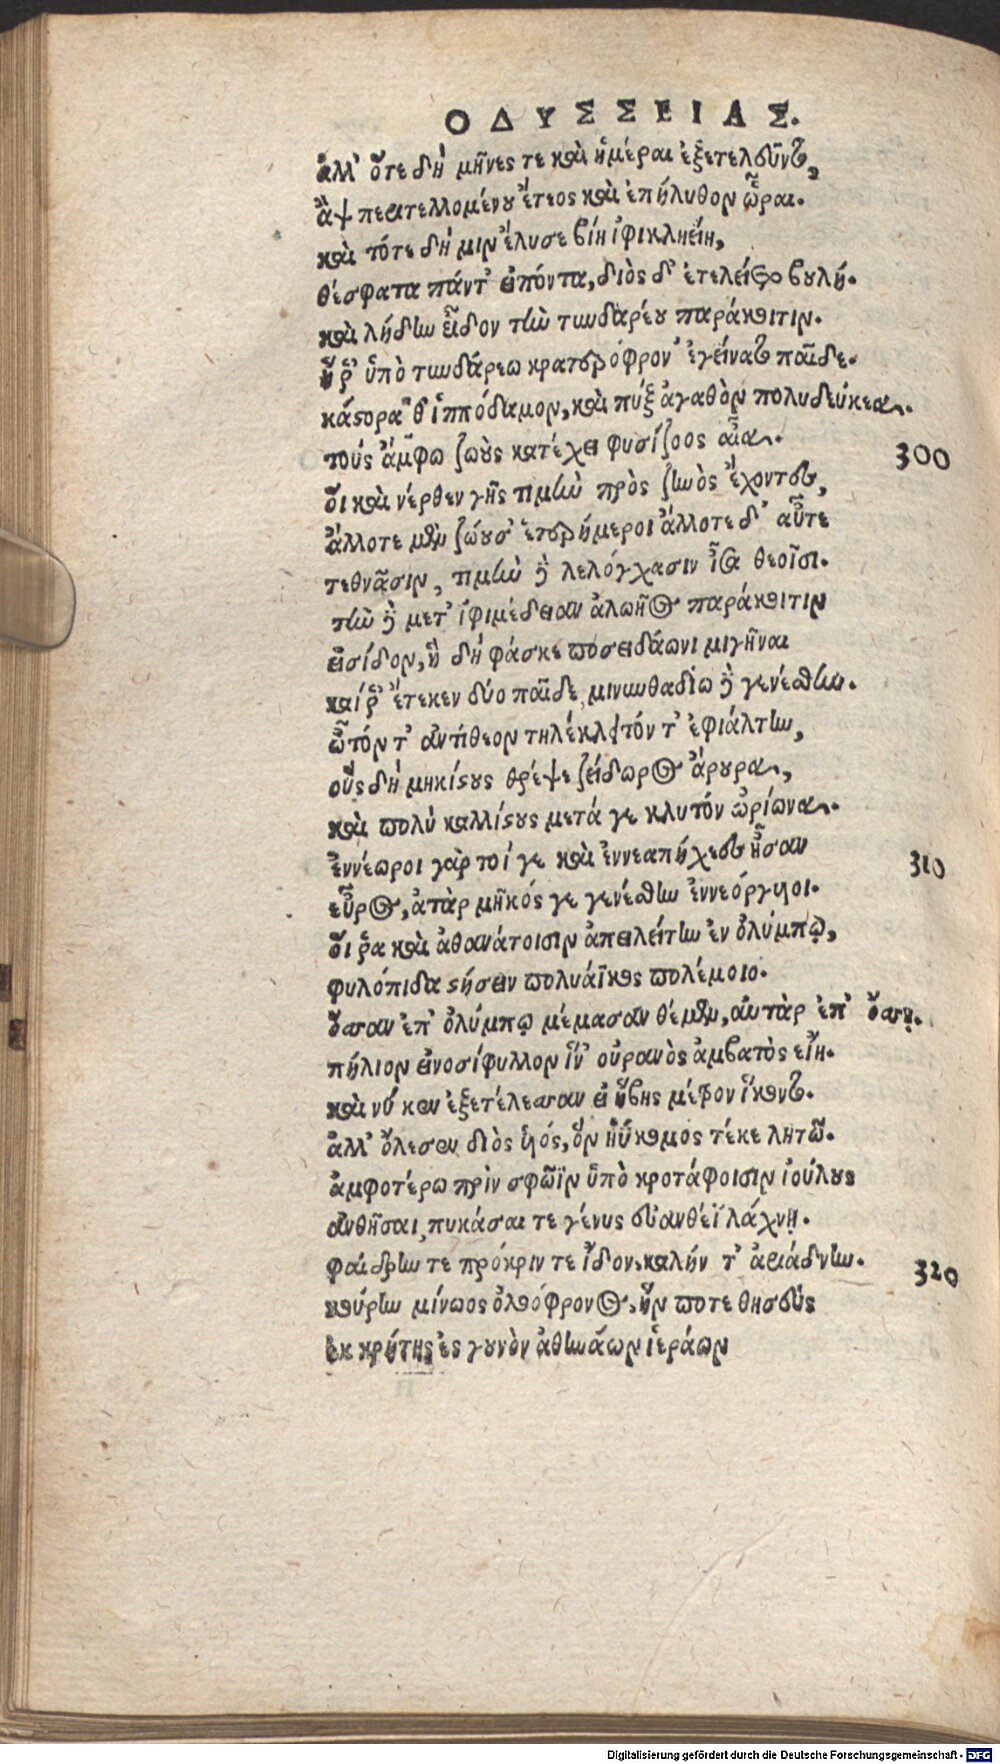 ΟΔΥΣΣΕΙΑΣ.
ἀλλ' ὅτε δὴ μῆνές τε καὶ ἡμέραι ἐξετελεῦντο,
ἂψ περιτελλομένου ἔτεος καὶ ἐπήλυθον ὧραι.
καὶ τότε δή μιν ἔλυσε βίη ἰφικληείη,
θέσφατα πάντ' εἰπόντα, διὸς δ' ἐτελείετο βουλή.
καὶ λήδην εἶδον τὴν τυνδαρέου παράκοιτιν.
ἥ ῥ' ὑπὸ τυνδάρεω κρατερόφρον' ἐγείνατο παῖδε.
κάστορά θ' ἱππόδαμον, καὶ πὺξ ἀγαθὸν πολυδεύκεα.
τοὺς ἄμφω ζωοὺς κατέχει φυσίζοος αἶα.
300
οἳ καὶ νέρθεν γῆς τιμὴν πρὸς ζηνὸς ἔχοντες,
ἄλλοτε μὲν ζώουσ' ἑτερήμεροι ἄλλοτε δ' αὖτε
τεθνᾶσιν, τιμὴν δὲ λελόγχασιν ἶσα θεοῖσι.
τὴν δὲ μετ' ἰφιμέδειαν ἀλωῆος παράκοιτιν
εἰσίδον, ἣ δὴ φάσκε ποσειδάωνι μιγῆναι
καί ῥ' ἔτεκεν δύο παῖδε, μινυνθαδίω δὲ γενέσθην.
ὦτόν τ' ἀντίθεον τηλέκλειτόν τ' ἐφιάλτην,
οὓς δὴ μηκίστους θρέψε ζείδωρος ἄρουρα,
καὶ πολὺ καλλίστους μετά γε κλυτὸν ὠρίωνα.
ἐννέωροι γὰρ τοί γε καὶ ἐννεαπήχεες ἦσαν
310
εὖρος, ἀτὰρ μῆκός γε γενέσθην ἐννεόργυιοι.
οἵ ῥα καὶ ἀθανάτοισιν ἀπειλείτην ἐν ὀλύμπῳ,
φυλόπιδα στήσειν πολυάϊκος πολέμοιο.
ὄσσαν ἐπ' ὀλύμπῳ μέμασαν θέμεν, αὐτὰρ ἐπ' ὄσσῃ.
πήλιον εἰνοσίφυλλον ἵν' οὐρανὸς ἀμβατὸς εἴη.
καὶ νύ κεν ἐξετέλεσσαν εἰ ἥβης μέτρον ἵκοντο.
ἀλλ' ὄλεσεν διὸς υἱός, ὃν ἠΰκομος τέκε λητώ.
ἀμφοτέρω πρὶν σφῶϊν ὑπὸ κροτάφοισιν ἰούλους
ἀνθῆσαι, πυκάσαι τε γένυς εὐανθέϊ λάχνῃ.
φαίδρην τε πρόκριν τε ἴδον, καλήν τ' ἀριάδνην.
320
κούρην μίνωος ὀλοόφρονος, ἥν ποτε θησεὺς
ἐκ κρήτης ἐς γουνὸν ἀθηνάων ἱεράων
Digitalisierung gefördert durch die Deutsche Forschungsgemeinschaft - DFG